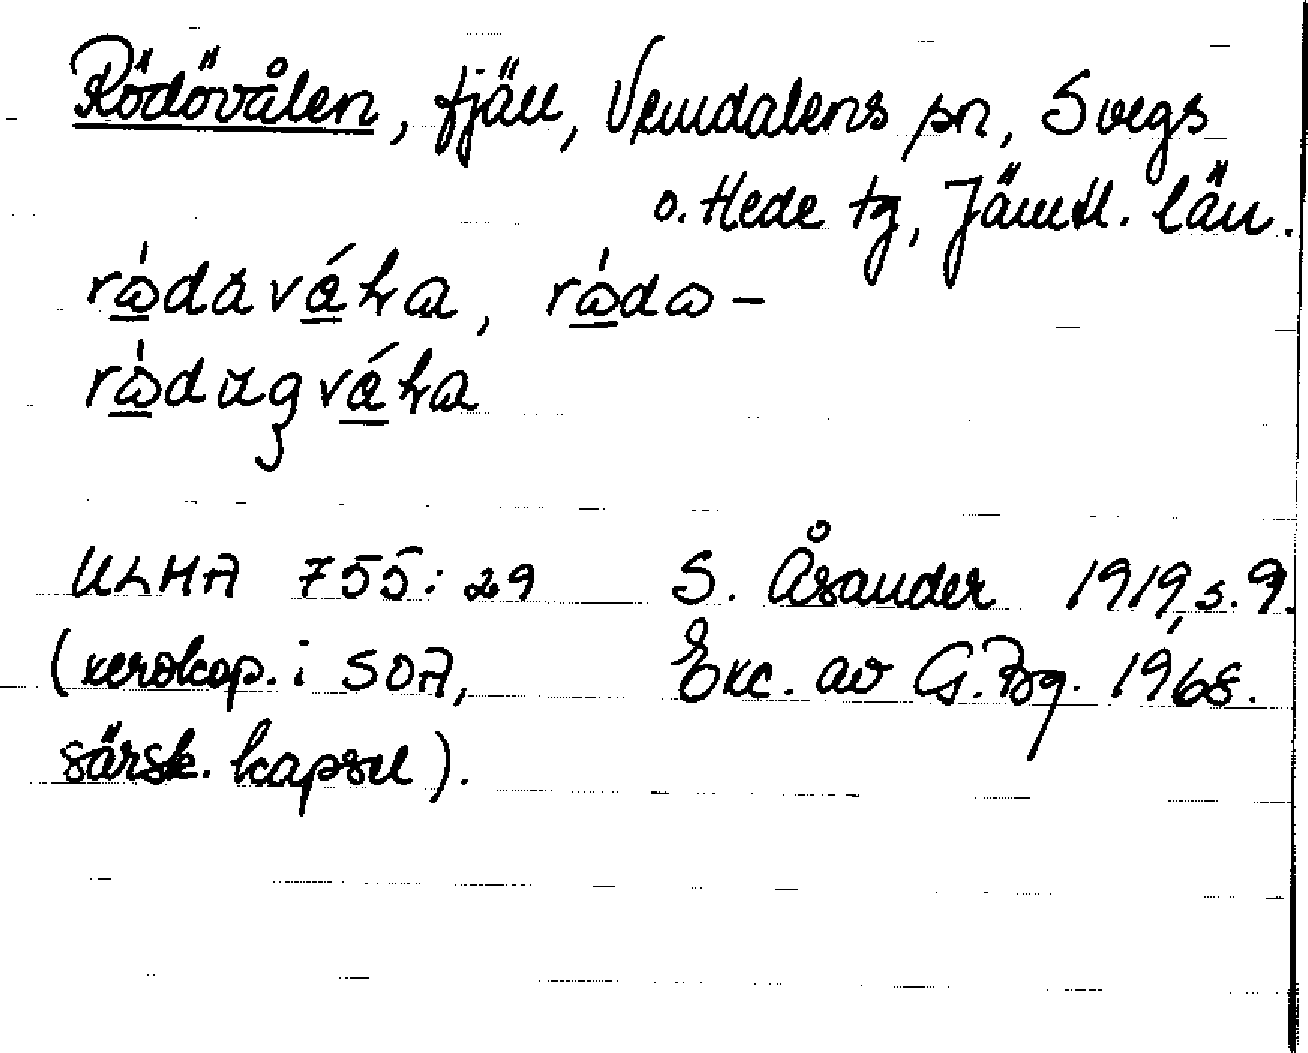 Rödövålen, fjäll, Vemdalens sn, Svegs
o. Hede tg, Jämtl. län.
ULMA 755:29 S. Åsander 1919, s. 9.
(xerokop. i SOA, Exc. av G. Bg. 1968.
särsk. kapsel).